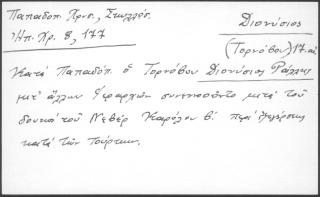 Παπαδοπ. Χρυσ., Σπυλλόσ.
Ἠπ. Χρ. 8, 177
Διονύσιος
(Τορνόβου) 17. αἰ.
Κατὰ Παπαδόπ. ὁ Τορνόβου Διονύσιος Ράλλης
μετ' ἄλλων Ἱεραρχῶν συνενοοῦντο μετὰ τοῦ
δουκὸς τοῦ Νεβὲρ Καρόλου β' περὶ ἐξεγέρσεως
κατὰ τῶν Τούρκων.